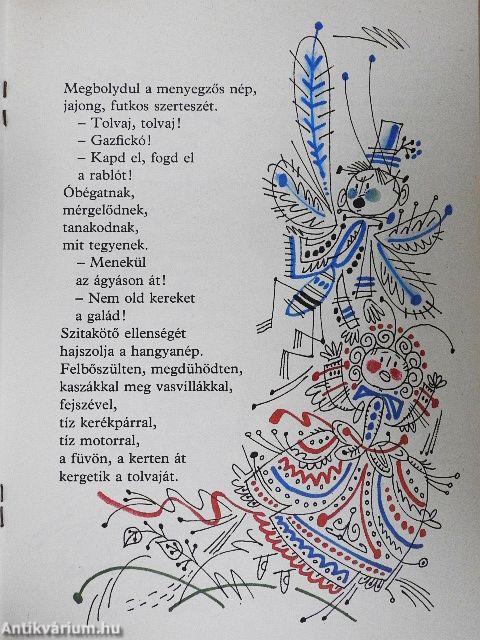 Megbolydul a menyegzős nép,
jajong, futkos szerteszét.
– Tolvaj, tolvaj!
– Gazfickó!
– Kapd el, fogd el
a rablót!
Óbégatnak,
mérgelődnek,
tanakodnak,
mit tegyenek.
– Menekül
az ágyáson át!
– Nem old kereket
a galád!
Szitakötő ellenségét
hajszolja a hangyanép.
Felbőszülten, megdühödten,
kaszákkal meg vasvillákkal,
fejszével,
tíz kerékpárral,
tíz motorral,
a füvön, a kerten át
kergetik a tolvaját.
Antikvárium.hu